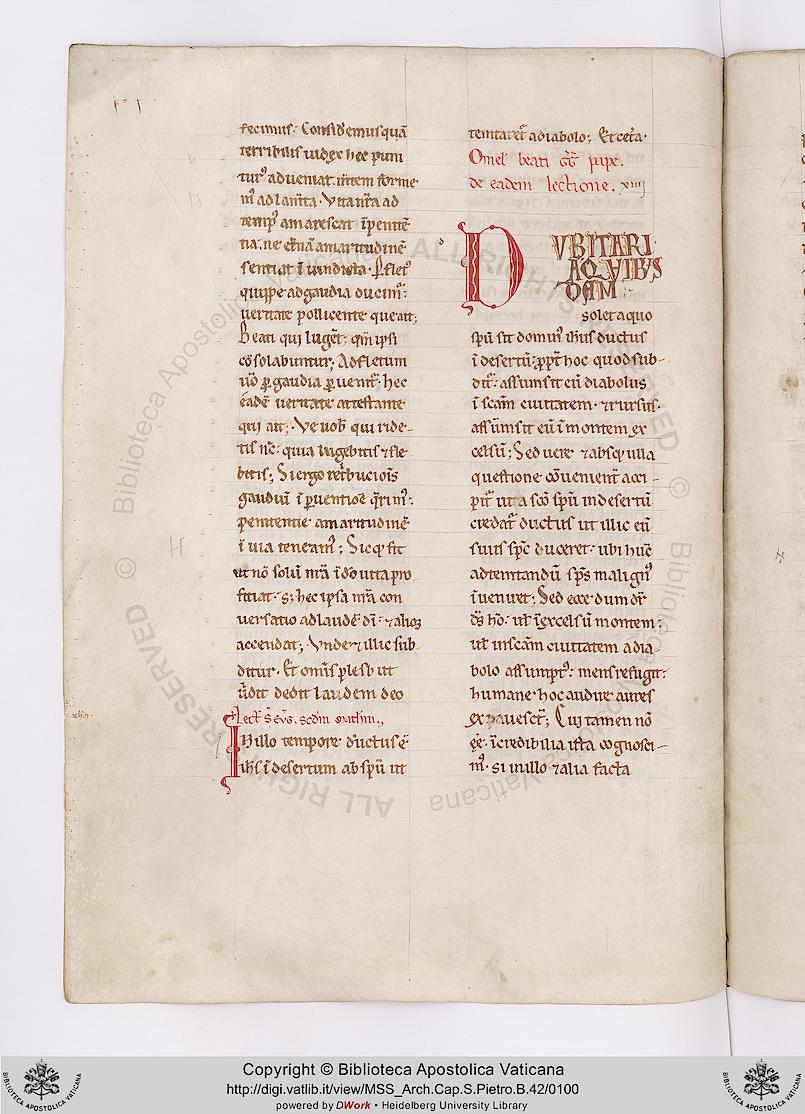 fecimus. Consideremus quā
terribilis iudex hec puni
tur⁹ adueniat. m̄tem forme
m⁹ ad lam̄ta. Vita nr̄a ad
temp⁹ amarescat ī peniten̄
tia. ne et̄nā amaritudinē
sentiat ī uindicta. P̱ flet⁹
quippe ad gaudia ducim᷒:
ueritate pollicente que ait;
Beati qui lugēt: qm̄ ipsi
cōsolabuntur; Ad fletum
ū̊o p̱ gaudia p̱uenit᷒: hec
eadē ueritate attestante
qui ait; Ve uob̄ qui ride-
tis nc̄: quia lugebitis ⁊ fle-
bitis; Si ergo ret̄bucioīs
gaudiū ī p̱uentiōe q̄rim⁹:
penitentie amaritudinē
ī uia teneam⁹; Sicq; fit
ut nō solū nr̄a ī dō uita pro
ficiat. s; hec ipsa nr̄a con
uersatio ad laudē dī. ⁊ alios
accendat; Vnde ⁊ illic sub-
ditur. Et omīs plebs ut
uīdit dedit laudem deo
Lect̄ s̄ euḡ. scdm̄ math̄m.
IN illo tempore ductus ē
ih̄s ī desertum ab sp̄u ut
temtaret᷒ a diabolo; Et cet̄a.
Omel̄ beati GḠ pape.
de eadem lectione. xiiij
DVBITARI
A QVIBVS
DAM
solet a quo
sp̄u sit dominus ih̄us ductus
ī desertū: ꝓpt̄ hoc quod sub-
dit᷒: assumsit eū diabolus
ī scām ciuitatem. ⁊ rursus.
assūmsit eū ī montem ex
celsū; Sed uere ⁊ absq; ulla
questione cōuenient̄ acci-
pit᷒ ut a scō sp̄u in desertū
credat᷒ ductus ut illic eū
suus sp̄c duceret. ubi hūc
ad temtandū sp̄s malign⁹
īueniret; Sed ecce dum dr̄
d̄s hō. ul̄ ī excelsū montem;
ul̄ in scām ciuitatem a dia
bolo assumpt⁹: mens refugit:
humane hoc audire aures
expauesct̄; Cui tamen nō
ēē. īcredibilia ista cognosci-
m⁹. si in illo ⁊ alia facta
© Biblioteca Apostolica Vaticana
ALL RIGHTS RESERVED
© Biblioteca Apostolica Vaticana
ALL RIGHTS RESERVED
Copyright © Biblioteca Apostolica Vaticana
http://digi.vatlib.it/view/MSS_Arch.Cap.S.Pietro.B.42/0100
powered by DWork • Heidelberg University Library
BIBLIOTECA APOSTOLICA VATICANA
BIBLIOTECA APOSTOLICA VATICANA